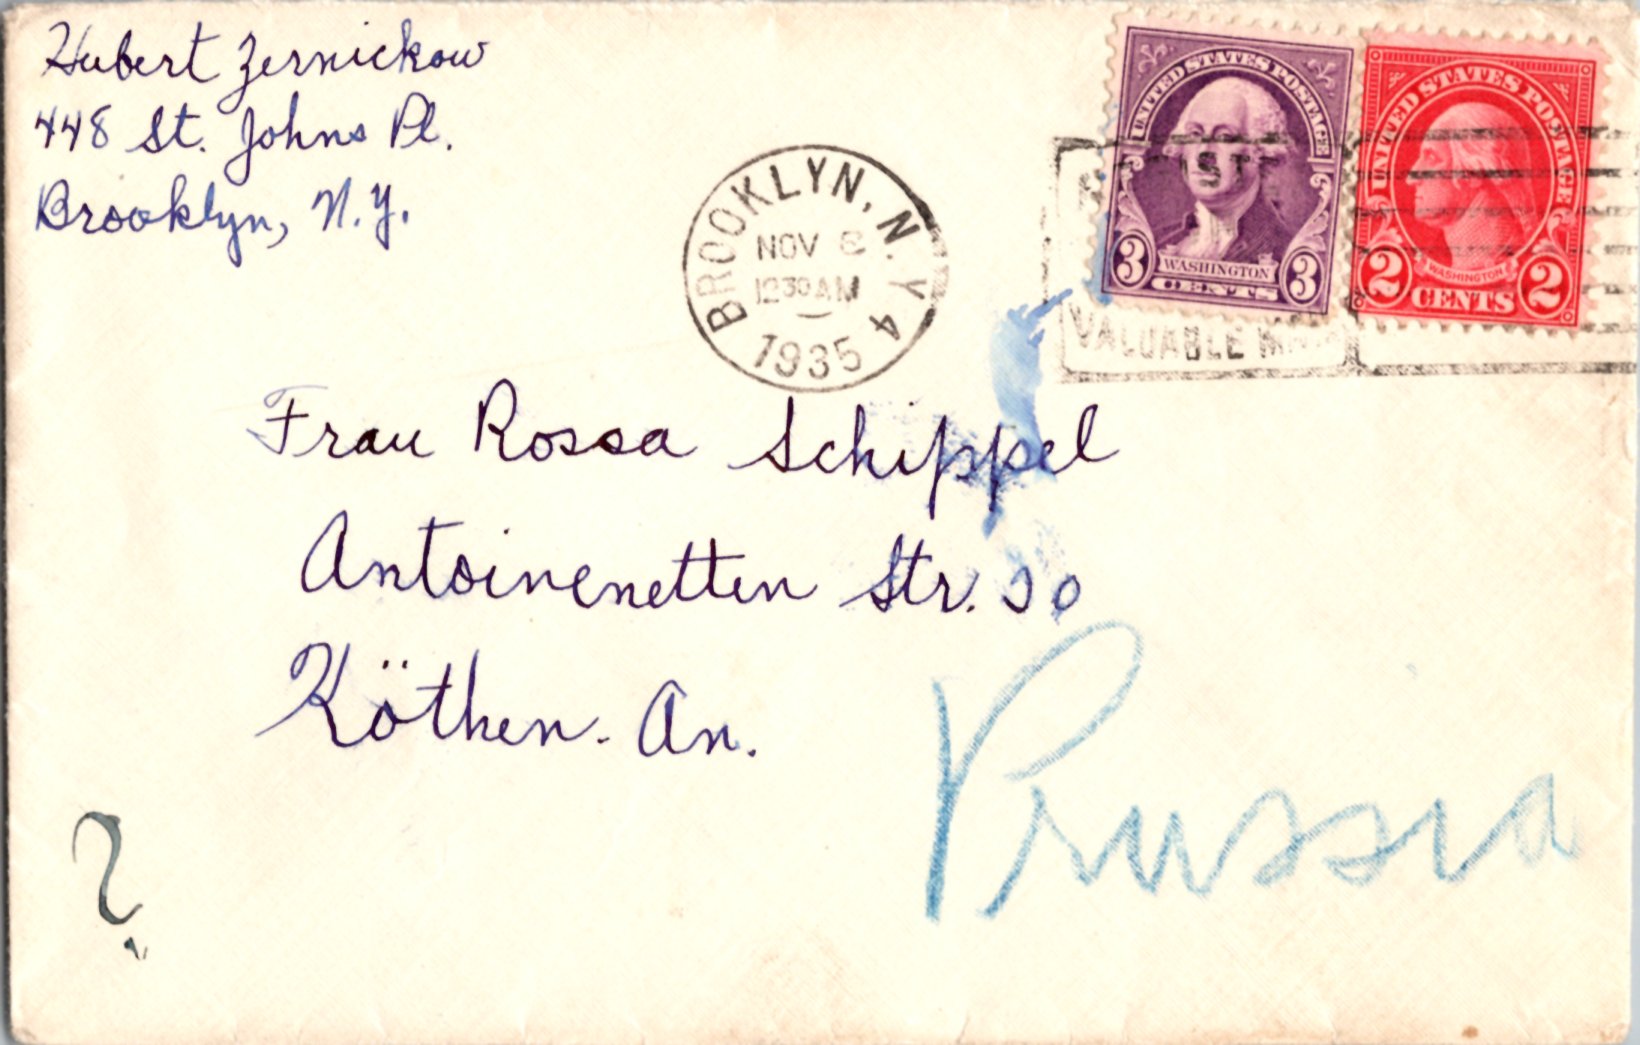 Hubert Zernickow
448 St. Johns Pl.
Brooklyn, N.Y.
BROOKLYN, N.Y. 4
NOV
1230 AM
1935
UNITED STATES POSTAGE
3 WASHINGTON 3
CENTS
UNITED STATES POSTAGE
WASHINGTON
2 CENTS 2
VALUABLE
Frau Rossa Schippel
Antoinenetten Str. 30
Köthen. An.
Prussia
?